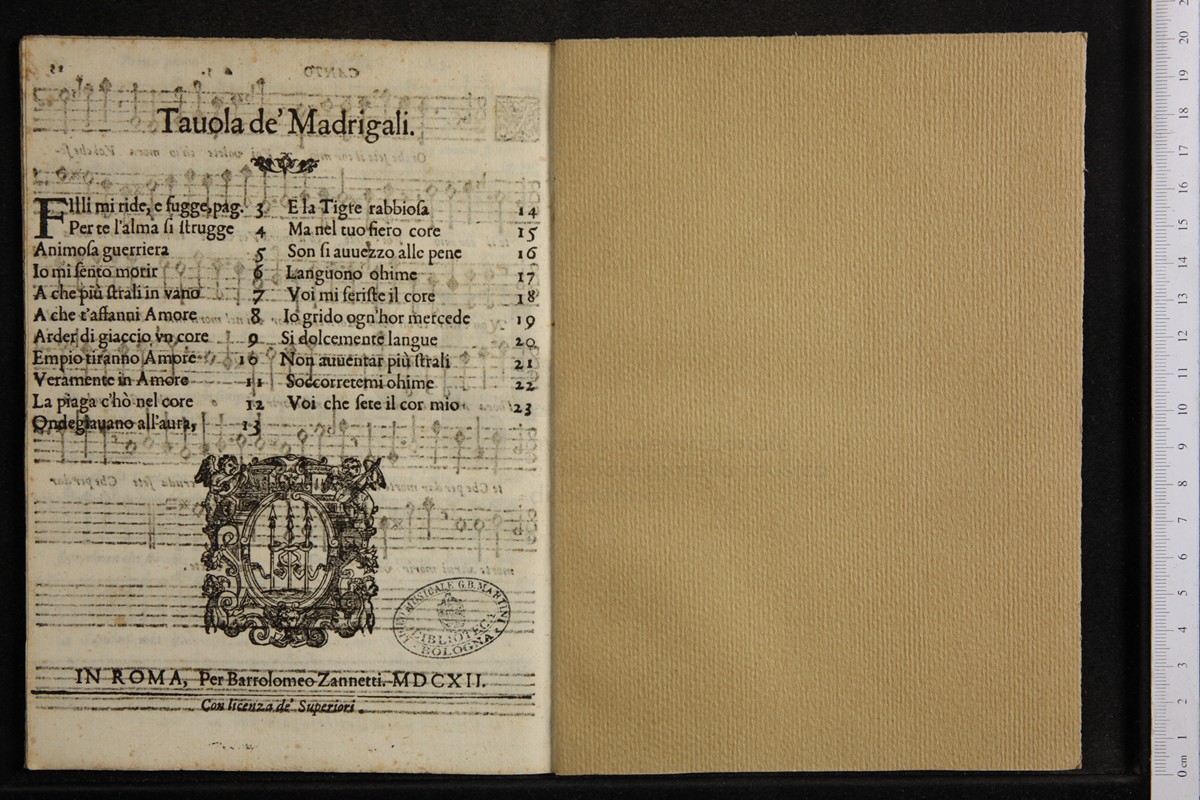 Tauola de' Madrigali.
FIlli mi ride, e fugge, pag. 3
Per te l'alma si strugge 4
Animosa guerriera 5
Io mi sento morir 6
A che più strali in vano 7
A che t'affanni Amore 8
Arder di giaccio vn core 9
Empio tiranno Amore 10
Veramente in Amore 11
La piaga c'hò nel core 12
Ondegiauano all'aura, 13
E la Tigre rabbiosa 14
Ma nel tuo fiero core 15
Son si auuezzo alle pene 16
Languono ohime 17
Voi mi feriste il core 18
Io grido ogn'hor mercede 19
Si dolcemente langue 20
Non auuentar più strali 21
Soccorretemi ohime 22
Voi che sete il cor mio 23
LICEO MUSICALE G.B. MARTINI
BIBLIOTECA
BOLOGNA
IN ROMA, Per Bartolomeo Zannetti. MDCXII.
Con licenza de' Superiori.
CANTO
0 cm 1 2 3 4 5 6 7 8 9 10 11 12 13 14 15 16 17 18 19 20